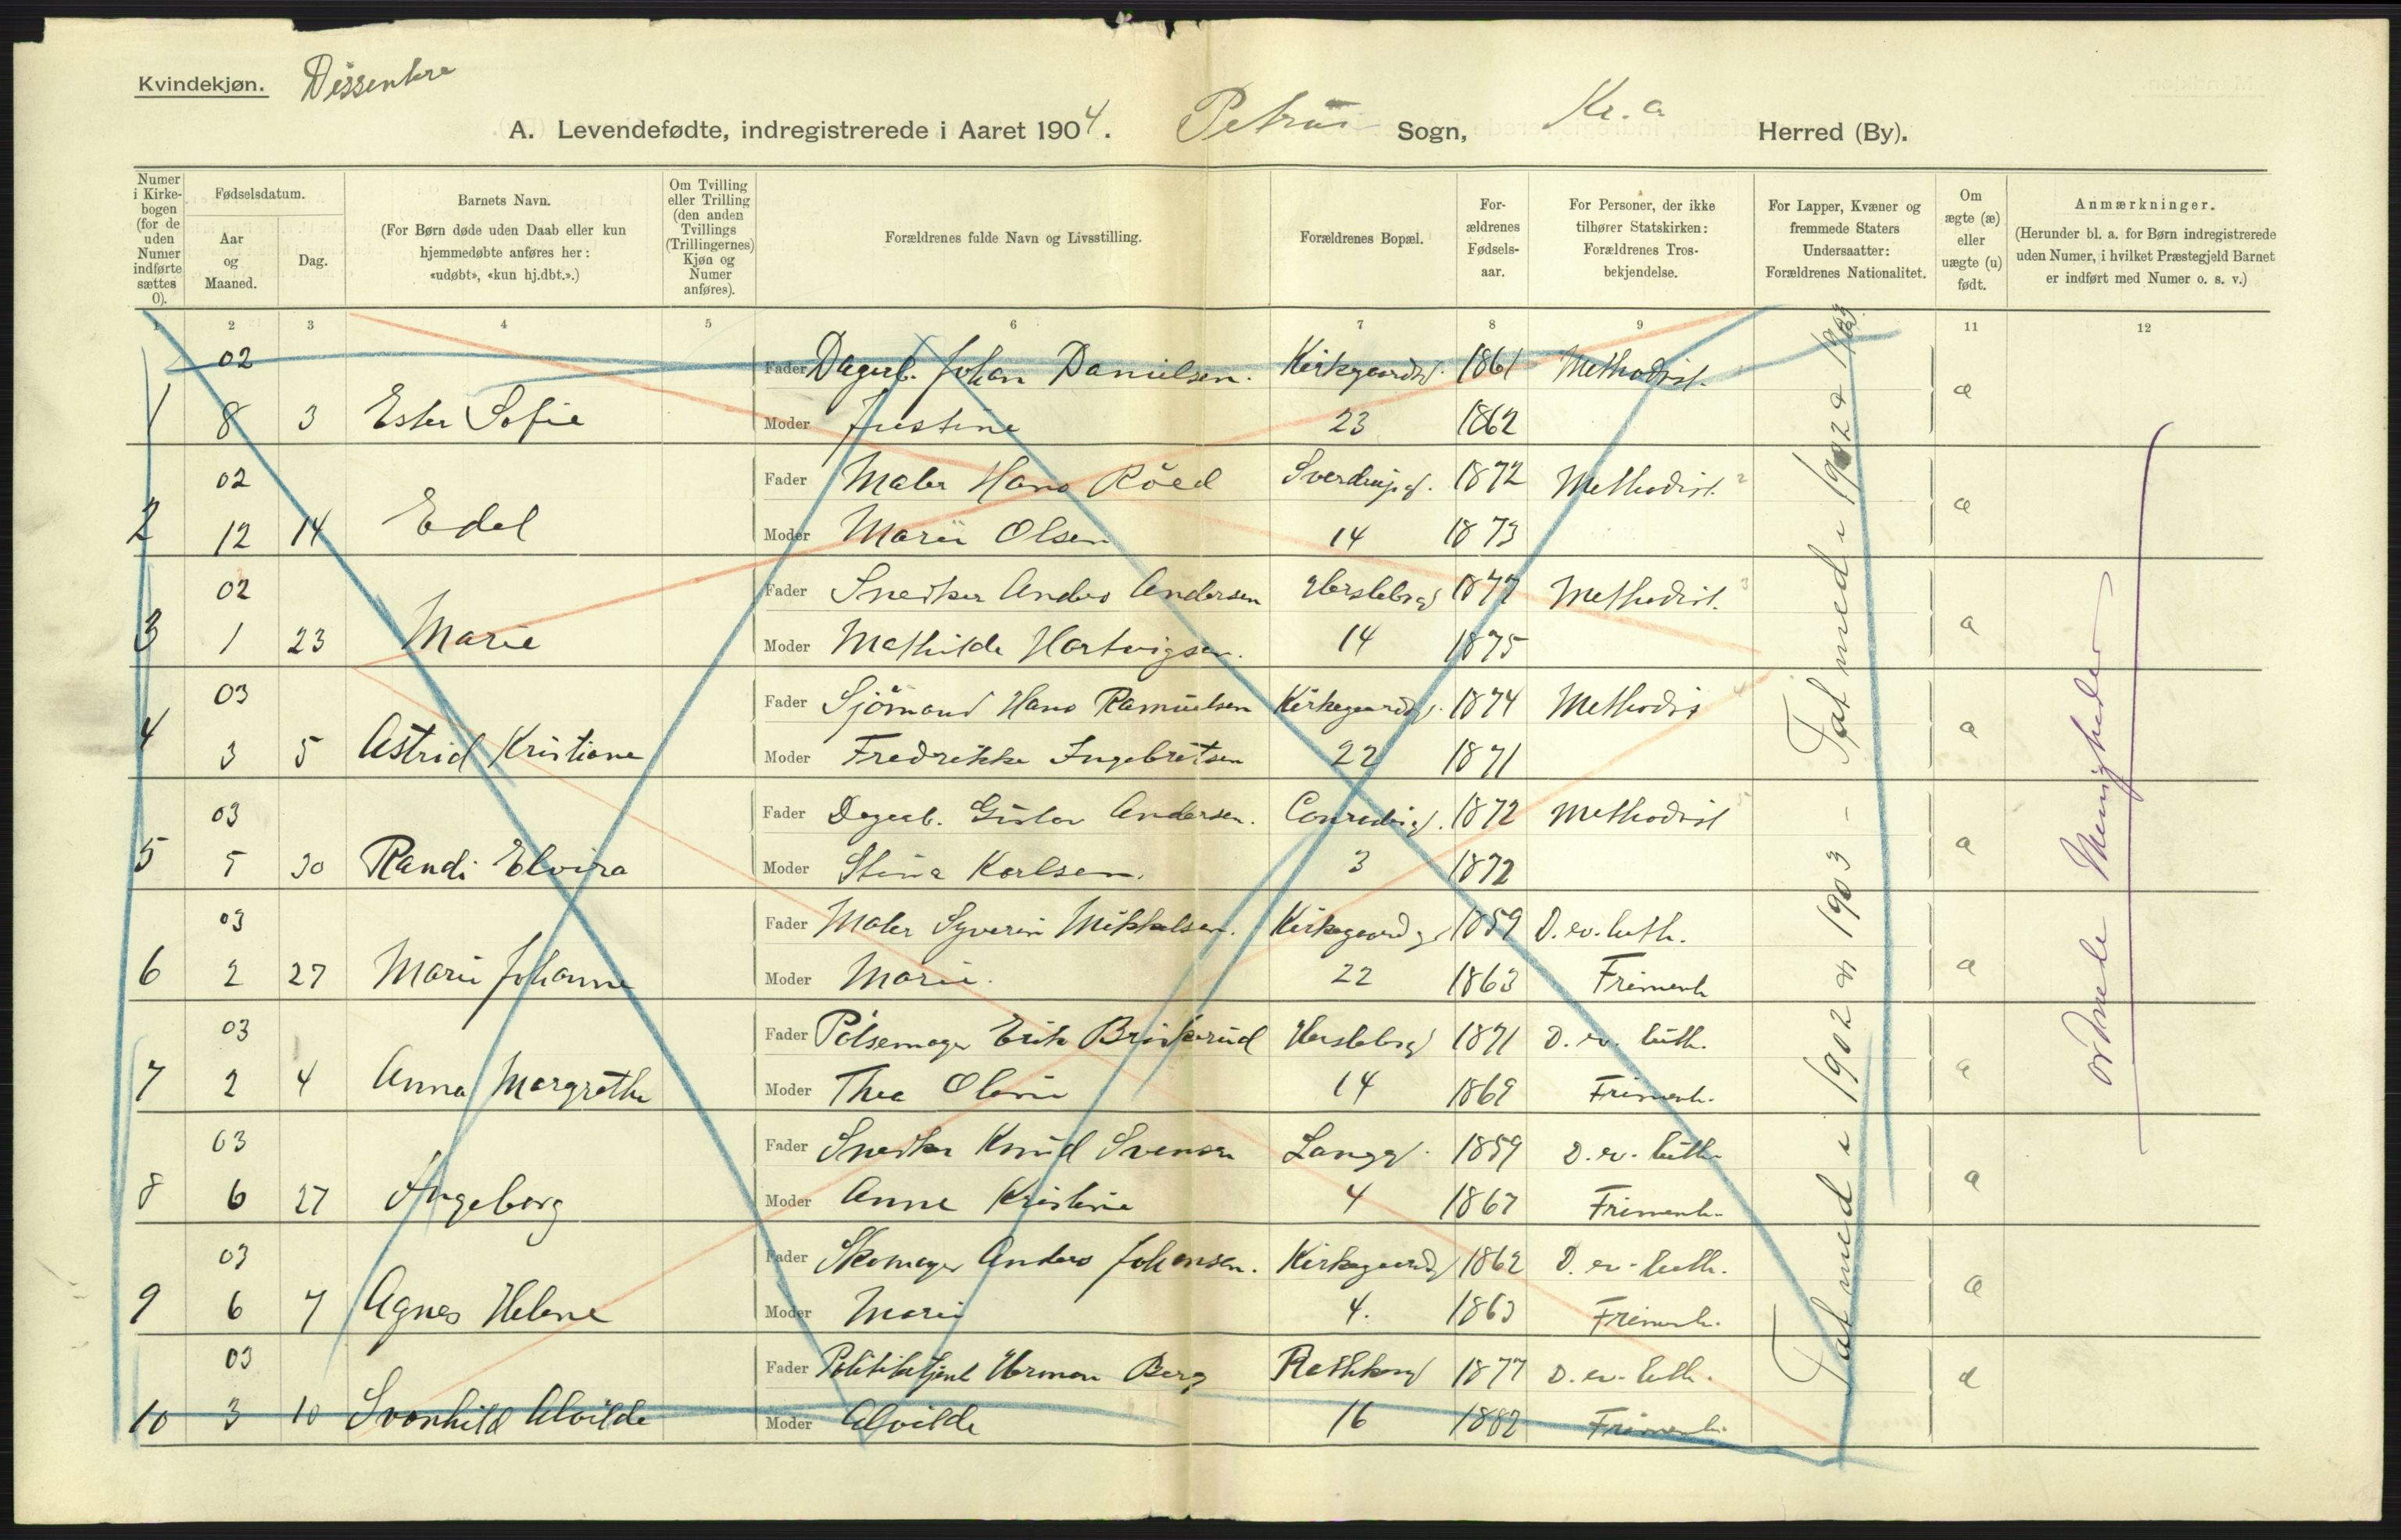 Kvindekjøn. Dissentere
A. Levendefødte, indregistrerede i Aaret 1904. Petrus Sogn, Kr.a Herred (By).
Numer i Kirkebogen (for de uden Numer indførte sættes 0).
Fødselsdatum.
Aar og Maaned.
Dag.
Barnets Navn.
(For Børn døde uden Daab eller kun hjemmedøbte anføres her: «udøbt», «kun hj.dbt.».)
Om Tvilling eller Trilling (den anden Tvillings (Trillingernes) Kjøn og Numer anføres).
Forældrenes fulde Navn og Livsstilling.
Forældrenes Bopæl.
Forældrenes Fødselsaar.
For Personer, der ikke tilhører Statskirken: Forældrenes Trosbekjendelse.
For Lapper, Kvæner og fremmede Staters Undersaatter: Forældrenes Nationalitet.
Om ægte (æ) eller uægte (u) født.
Anmærkninger.
(Herunder bl. a. for Børn indregistrerede uden Numer, i hvilket Præstegjeld Barnet er indført med Numer o. s. v.)
1 2 3 4 5 6 7 8 9 11 12
02 Fader Dagarb. Johan Danielsen. Kirkegaardsg. 1861 Methodist.
1 8 3 Ester Sofie Moder Justine 23 1862 æ
02 Fader Maler Hans Röed Sverdrupsg. 1872 Methodist. 2
2 12 14 Edel Moder Marie Olsen 14 1873 æ
02 Fader Snedker Anders Andersen Herslebsg 1877 Methodist. 3
3 1 23 Marie Moder Mathilde Hartvigsen. 14 1875 æ
03 Fader Sjömand Hans Ramuelsen Kirkegaardsg. 1874 Methodis 4
4 3 5 Astrid Kristiane Moder Fredrikke Ingebretsen 22 1871 æ
03 Fader Dagarb. Gustav Andersen. Conradisg. 1872 Methodist 5
5 5 30 Randi Elvira Moder Stina Karlsen. 3 1872 æ
03 Fader Maler Syverin Mikkelsen. Kirkegaardsg 1859 D. ev. luth.
6 2 27 Marie Johanne Moder Marie. 22 1863 Frimenh æ
03 Fader Pölsemager Erik Herslebsg 1871 D. ev. luth.
7 2 4 Anna Margrethe Moder Thea Oline 14 1869 Frimenh. æ
03 Fader Snedker Knud Svensen Langg. 1859 D. ev. luth.
8 6 27 Ingeborg Moder Anne Kristine 4 1867 Frimenh. æ
03 Fader Skomager Anders Johansen. Kirkegaardsg 1862 D. ev. luth.
9 6 7 Agnes Helene Moder Marie 4. 1863 Frimenh. æ
03 Fader Politibetjent Herman Berg 1877 D. ev. luth.
10 3 10 Svanhild Alvilde Moder Alvilde 16 1882 Frimenh. æ
Tat med i 1902 & 1903
Tat med i 1902 & 1903 —
ordnede Menigheder